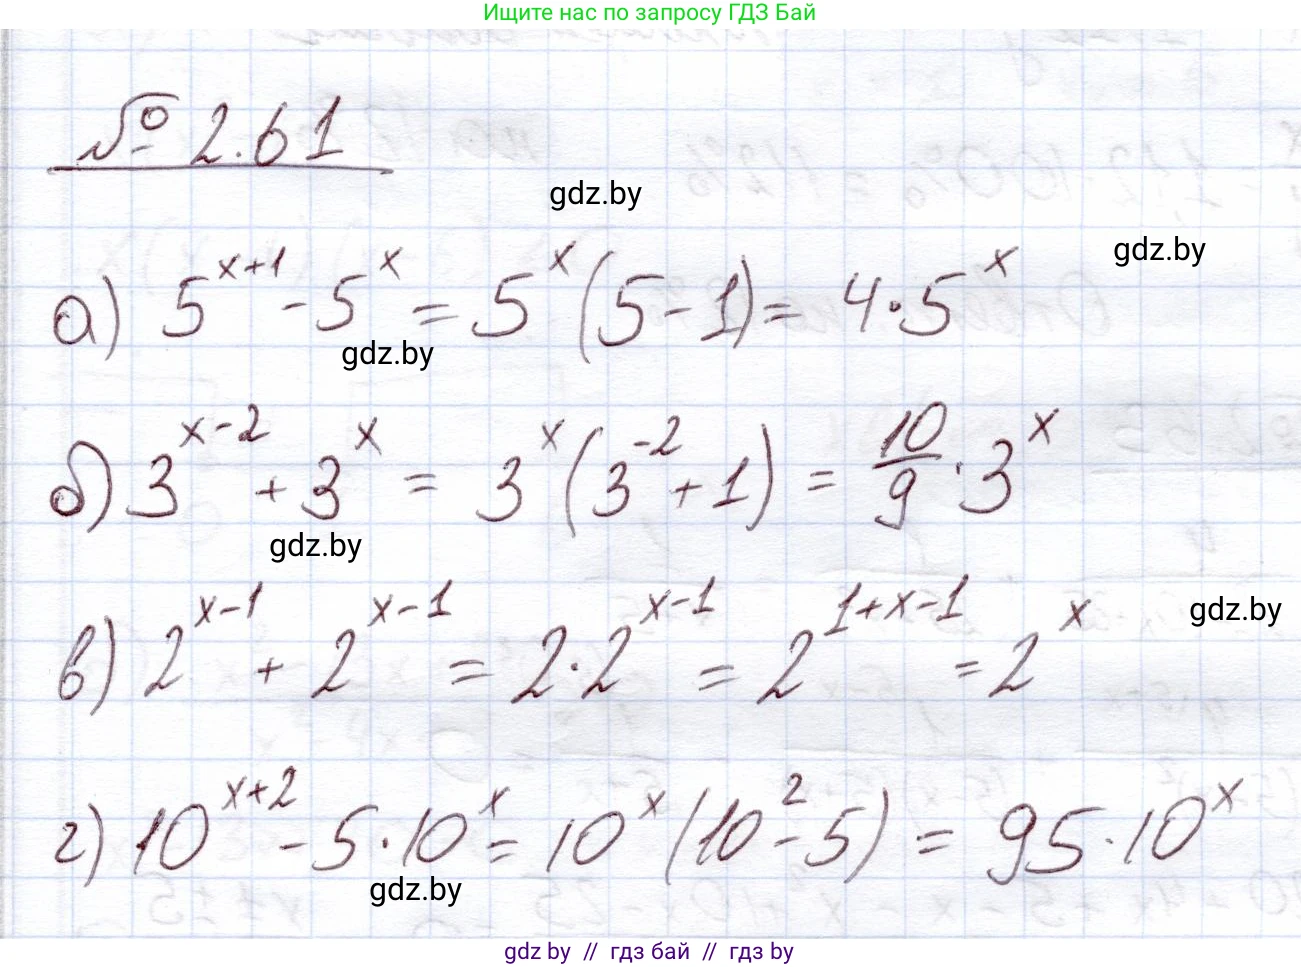 Ищите нас по запросу ГДЗ Бай
№ 2.61
gdz.by
gdz.by
а) 5^{x+1} - 5^x = 5^x (5 - 1) = 4 · 5^x
gdz.by
б) 3^{x-2} + 3^x = 3^x (3^{-2} + 1) = \frac{10}{9} · 3^x
gdz.by
gdz.by
в) 2^{x-1} + 2^{x-1} = 2 · 2^{x-1} = 2^{1+x-1} = 2^x
г) 10^{x+2} - 5 · 10^x = 10^x (10^2 - 5) = 95 · 10^x
gdz.by
gdz by // гдз бай // гдз by